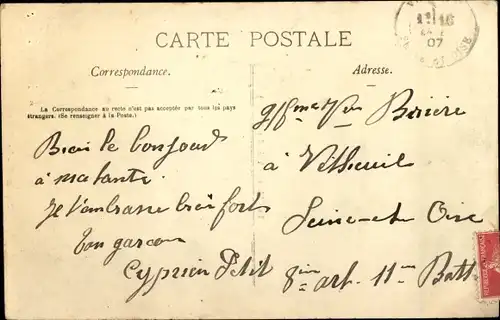 CARTE POSTALE
Correspondance.
Adresse.
La Correspondance au recto n'est pas acceptée par tous les pays
étrangers. (Se renseigner à la Poste.)
Bien le bonjour
à ma tante
Je t'embrasse bien fort
ton garçon
Cyprien Petit
Brière
à Vétheuil
Seine-et-Oise
8ième art. 11me Batt
07
OISE